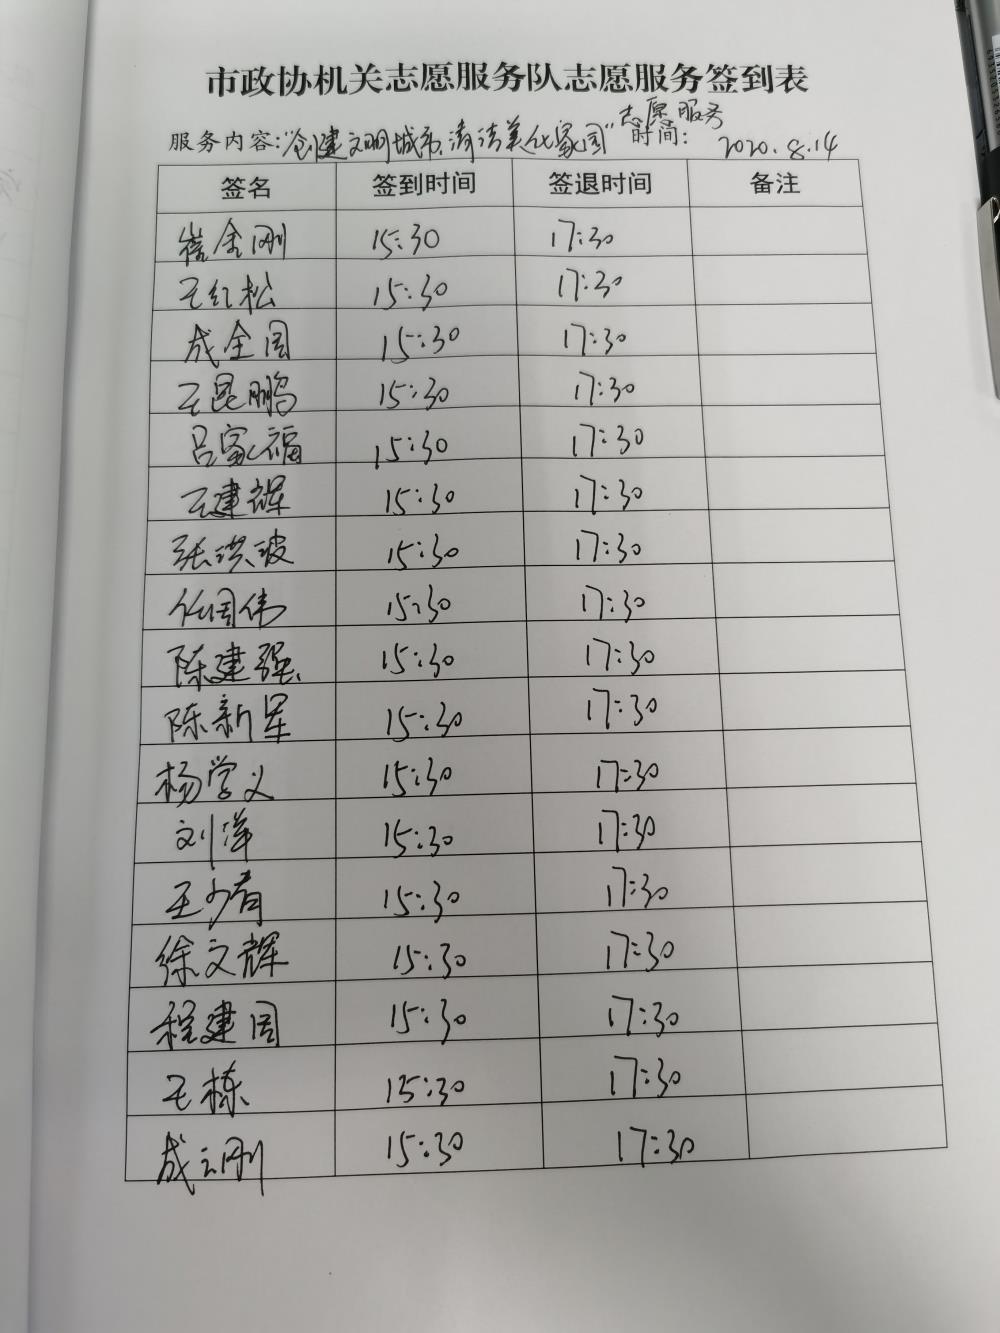 市政协机关志愿服务队志愿服务签到表
服务内容:"创建文明城市、清洁美化家园"志愿服务 时间: 2020.8.14
签名 签到时间 签退时间 备注
崔金刚 15:30 17:30
王红松 15:30 17:30
成全国 15:30 17:30
王昆鹏 15:30 17:30
吕家福 15:30 17:30
王建辉 15:30 17:30
张洪波 15:30 17:30
任国伟 15:30 17:30
陈建强 15:30 17:30
陈新星 15:30 17:30
杨学义 15:30 17:30
刘洋 15:30 17:30
王少春 15:30 17:30
徐文辉 15:30 17:30
程建国 15:30 17:30
王栋 15:30 17:30
成立刚 15:30 17:30